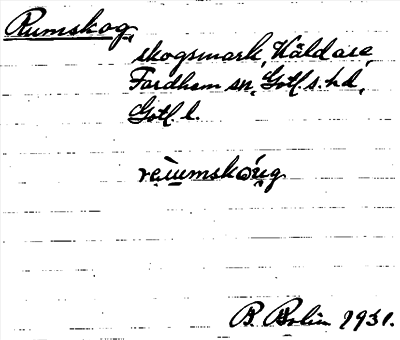 Rumskog,
skogsmark, Häldare,
Fardhem sn, Gotl. s. hd,
Gotl. l.
B Bolin 1931.